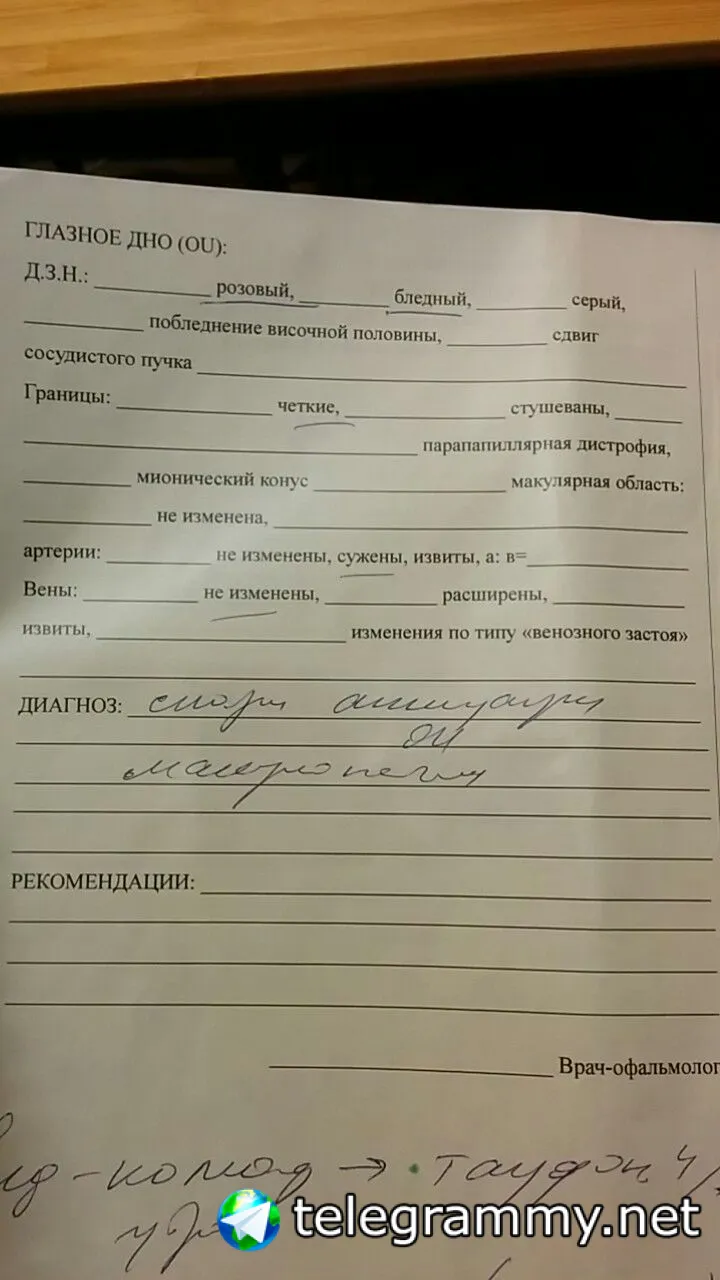 ГЛАЗНОЕ ДНО (OU):
Д.З.Н.: розовый, бледный, серый,
побледнение височной половины, сдвиг
сосудистого пучка
Границы: четкие, стушеваны,
парапапиллярная дистрофия,
мионический конус макулярная область:
не изменена,
артерии: не изменены, сужены, извиты, а: в=
Вены: не изменены, расширены,
извиты, изменения по типу «венозного застоя»
ДИАГНОЗ: спазм аккомодации
OU
РЕКОМЕНДАЦИИ:
Врач-офальмолог
→ тауфон 4
telegrammy.net